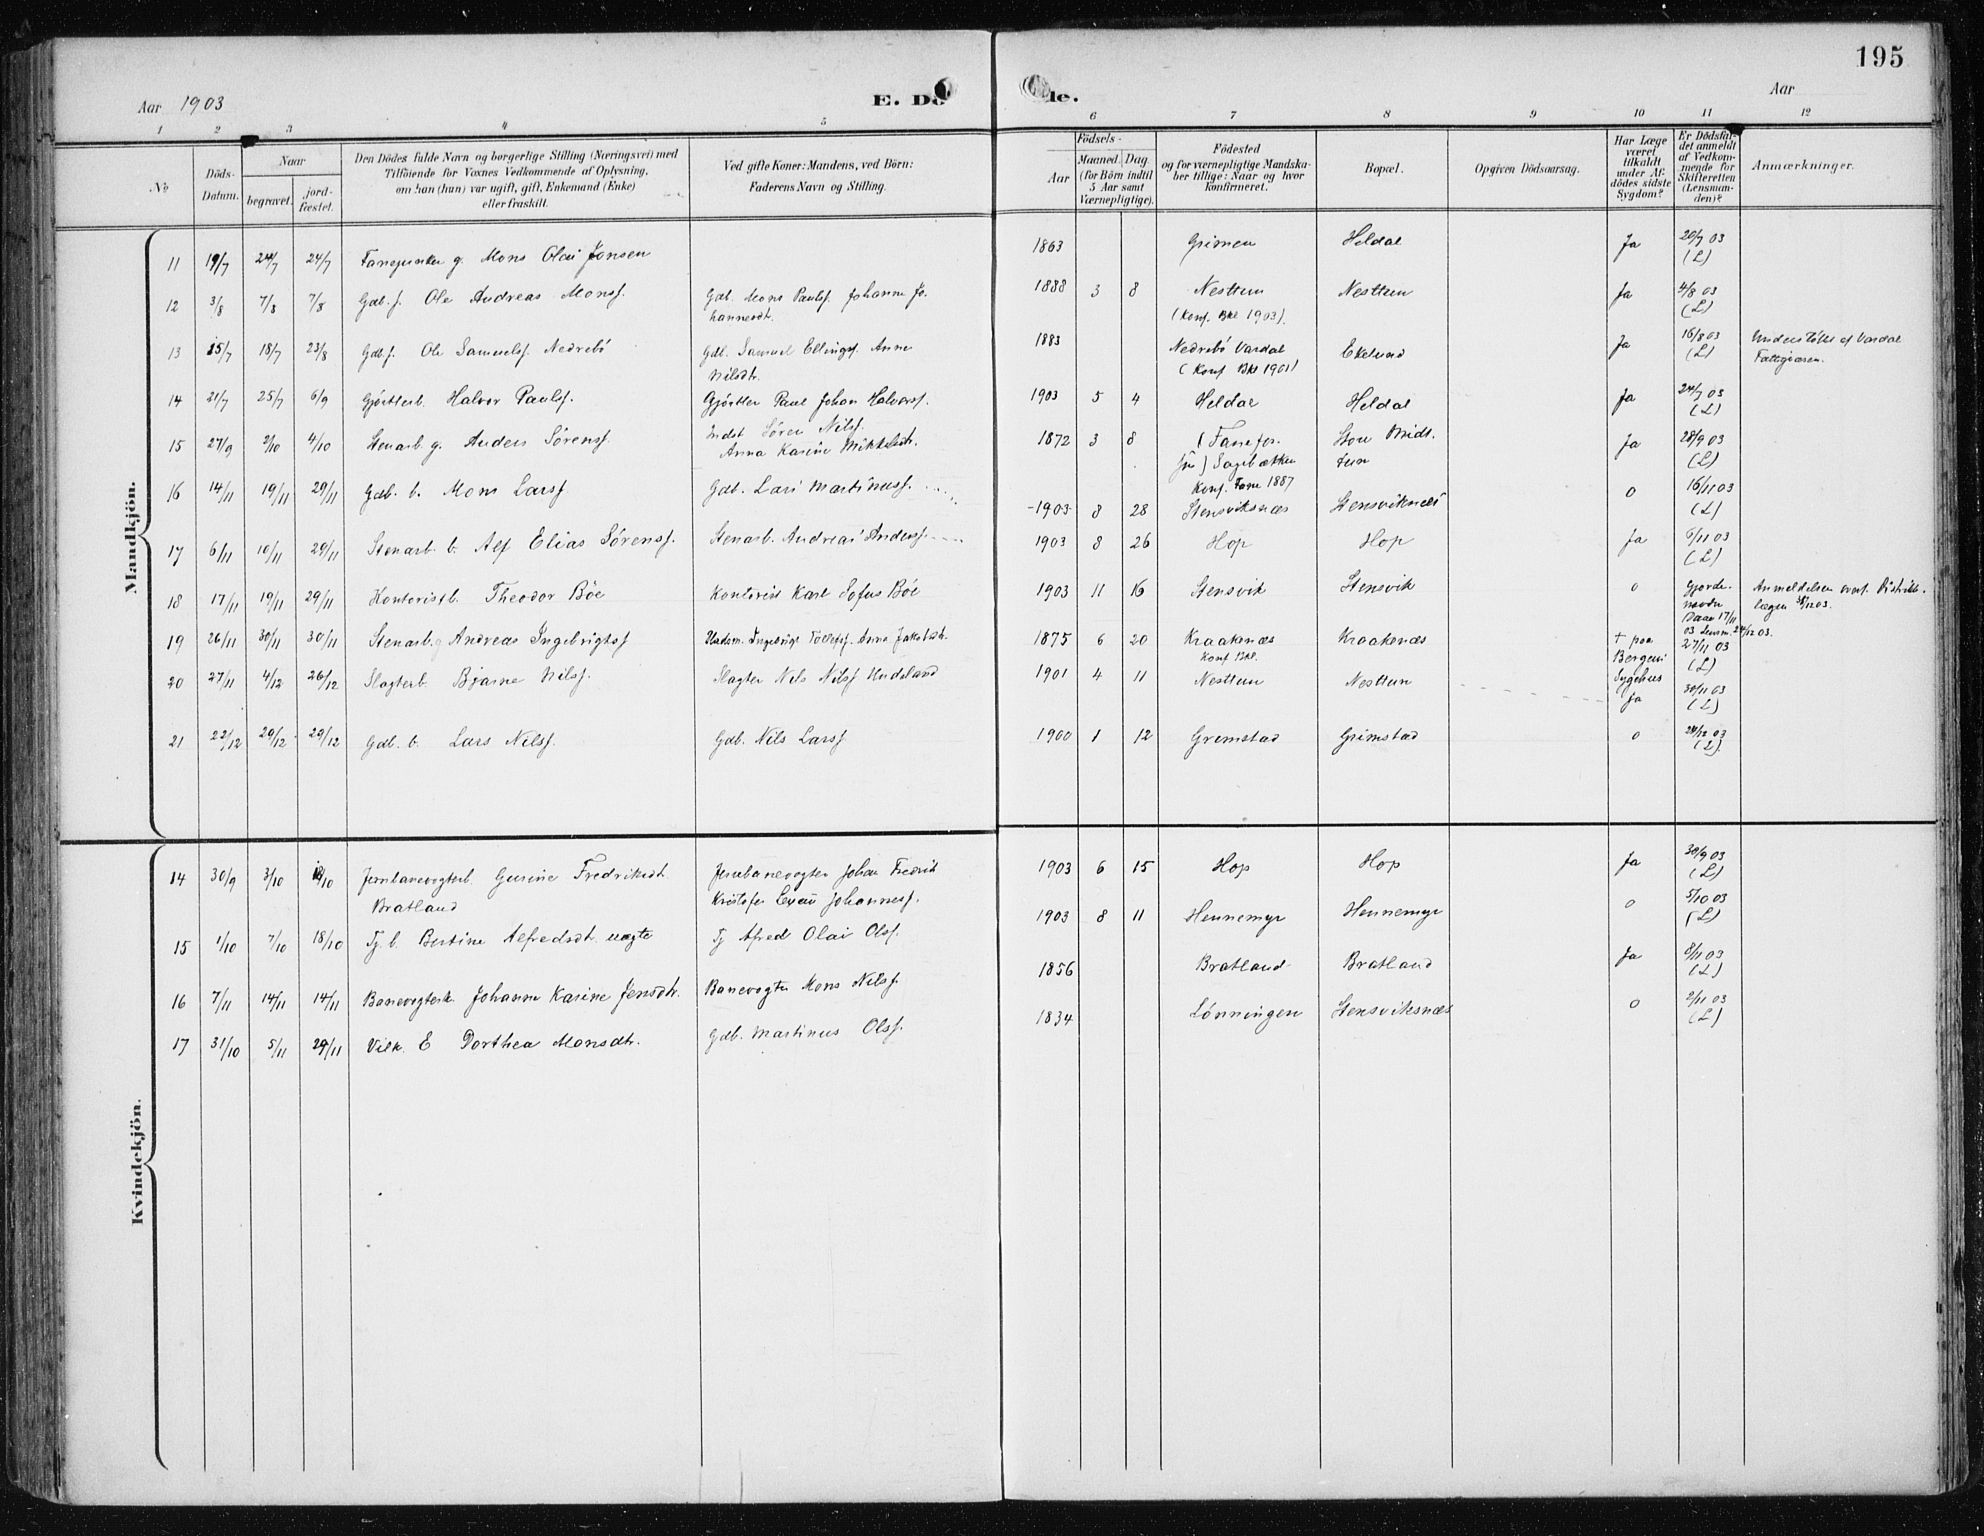 195
Aar 1903
E. Dö
de.
Aar
1 2 3 4 5 6 7 8 9 10 11 12
No
Döds-Datum.
Naar
begravet.
jord-fæstet.
Den Dödes fulde Navn og borgerlige Stilling (Næringsvei) med
Tilföiende for Voxnes Vedkommende af Oplysning,
om han (hun) var ugift, gift, Enkemand (Enke)
eller fraskilt.
Ved gifte Koner: Mandens, ved Börn:
Faderens Navn og Stilling.
Födsels-
Aar
Maaned. Dag.
(for Börn indtil
5 Aar samt
Værnepligtige).
Födested
og for værnepligtige Mandska-
ber tillige: Naar og hvor
konfirmeret.
Bopæl.
Opgiven Dödsaarsag.
Har Læge
været
tilkaldt
under Af-
dödes sidste
Sygdom?
Er Dödsfal-
det anmeldt
af Vedkom-
mende for
Skifteretten
(Lensman-
den)?
Anmærkninger.
Mandkjön.
11 19/7 24/7 24/7 Fanejunker g. Mons Olai Jonsen 1863 Grimen Heldal Ja 20/7 03
(L)
12 3/8 7/8 7/8 Gdb. s. Ole Andreas Monss. Gdb. Mons Paulss. Johanne Jo- 1888 3 8 Nesttun Nesttun Ja 4/8 03
hannesdt. (Konf. Bkl 1903). (L)
13 15/7 18/7 23/8 Gdb. s. Ole Samuelss. Nedrebö Gdb. Samuel Ellingss. Anne 1883 Nedrebö Vardal Ekelund Ja 16/8 03 Understöttet af Vardal
Nilsdt. (Konf Bkl 1901) (L) Fattigvæsen.
14 21/7 25/7 6/9 Gjörtlerb. Halvor Paulss. Gjörtler Paul Johan Halvorss. 1903 5 4 Heldal Heldal Ja 24/7 03
(L)
15 27/9 2/10 4/10 Stenarb g. Anders Sörenss. Indst Sören Nilss. 1872 3 8 Store Midt- Ja 28/9 03
Anna Karine Mikkelsdt. tun (L)
Konf. Fane 1887
16 14/11 19/11 29/11 Gdb. b. Mons Larss Gdb. Lars Martinuss. 1903 8 28 Stensviksnæs Stensviknæs o 16/11 03
(L)
17 6/11 10/11 29/11 Stenarb. b. Alf Elias Sörenss. Stenarb. Andreas Anderss. 1903 8 26 Hop Hop Ja 6/11 03
(L)
18 17/11 19/11 29/11 Kontoristb. Theodor Böe Kontorist Karl Sofus Böe 1903 11 16 Stensvik Stensvik o Gjorde- Anmeldelsen overs. Distrikts-
lægen
19 26/11 30/11 30/11 Stenarb g Andreas Ingebrigtss Ingebrigt Tollefss. Anna Jakobsdt. 1875 6 20 Kraakenæs Kraakenæs + paa 27/11 03
Konf Bkl. Bergens (L)
Sygehus
20 27/11 4/12 26/12 Slagterb. Bjarne Nilss. Slagter Nils Nilss Hudsland 1901 4 11 Nesttun Nesttun Ja 30/11 03
(L)
21 22/12 29/12 29/12 Gdb. b. Lars Nilss. Gdb. Nils Larss. 1900 1 12 Gremstad Grimstad o 24/12 03
(L)
Kvindekjön.
14 30/9 3/10 Jernbanevogterb. Gurine Fredriksdt. Jernbanevogter Johan Fredrik 1903 6 15 Hop Hop Ja 30/9 03
Bratland Kristofer Johanness. (L)
15 1/10 7/10 18/10 Tj. b. Bertine Alfredsdt. uægte Tj Afred Olai Olss. 1903 8 11 Hennemyr Hennemyr o 5/10 03
(L)
16 7/11 14/11 14/11 Banevogterk. Johanne Karine Jensdt. Banevogter Mons Nilss. 1856 Bratland Bratland Ja 8/11 03
(L)
17 31/10 5/11 29/11 Vilk. E Dorthea Monsdt. Gdb. Martinus Olss. 1834 Lönningen Stensviksnæs o 2/11 03
(L)